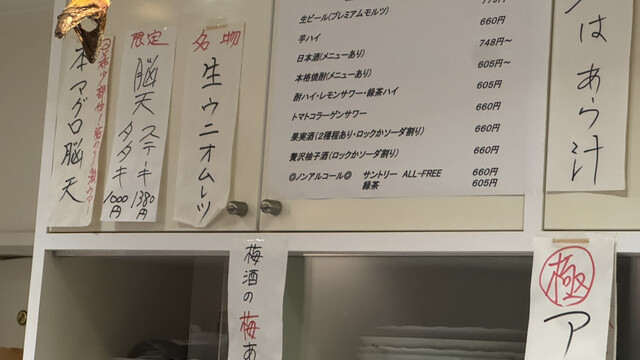 本マグロ脳天
限定
脳天ステーキ 1380円
タタキ 1000円
名物
生ウニオムレツ
生ビール(プレミアムモルツ)
660円
芋ハイ
748円~
日本酒(メニューあり)
605円~
本格焼酎(メニューあり)
605円
酎ハイ・レモンサワー・緑茶ハイ
トマトコラーゲンサワー
660円
果実酒(2種程あり・ロックかソーダ割り)
660円
贅沢柚子酒(ロックかソーダ割り)
660円
◎ノンアルコール◎ サントリー ALL-FREE 660円
緑茶 605円
はあら汁
梅酒の梅あ
極
ア